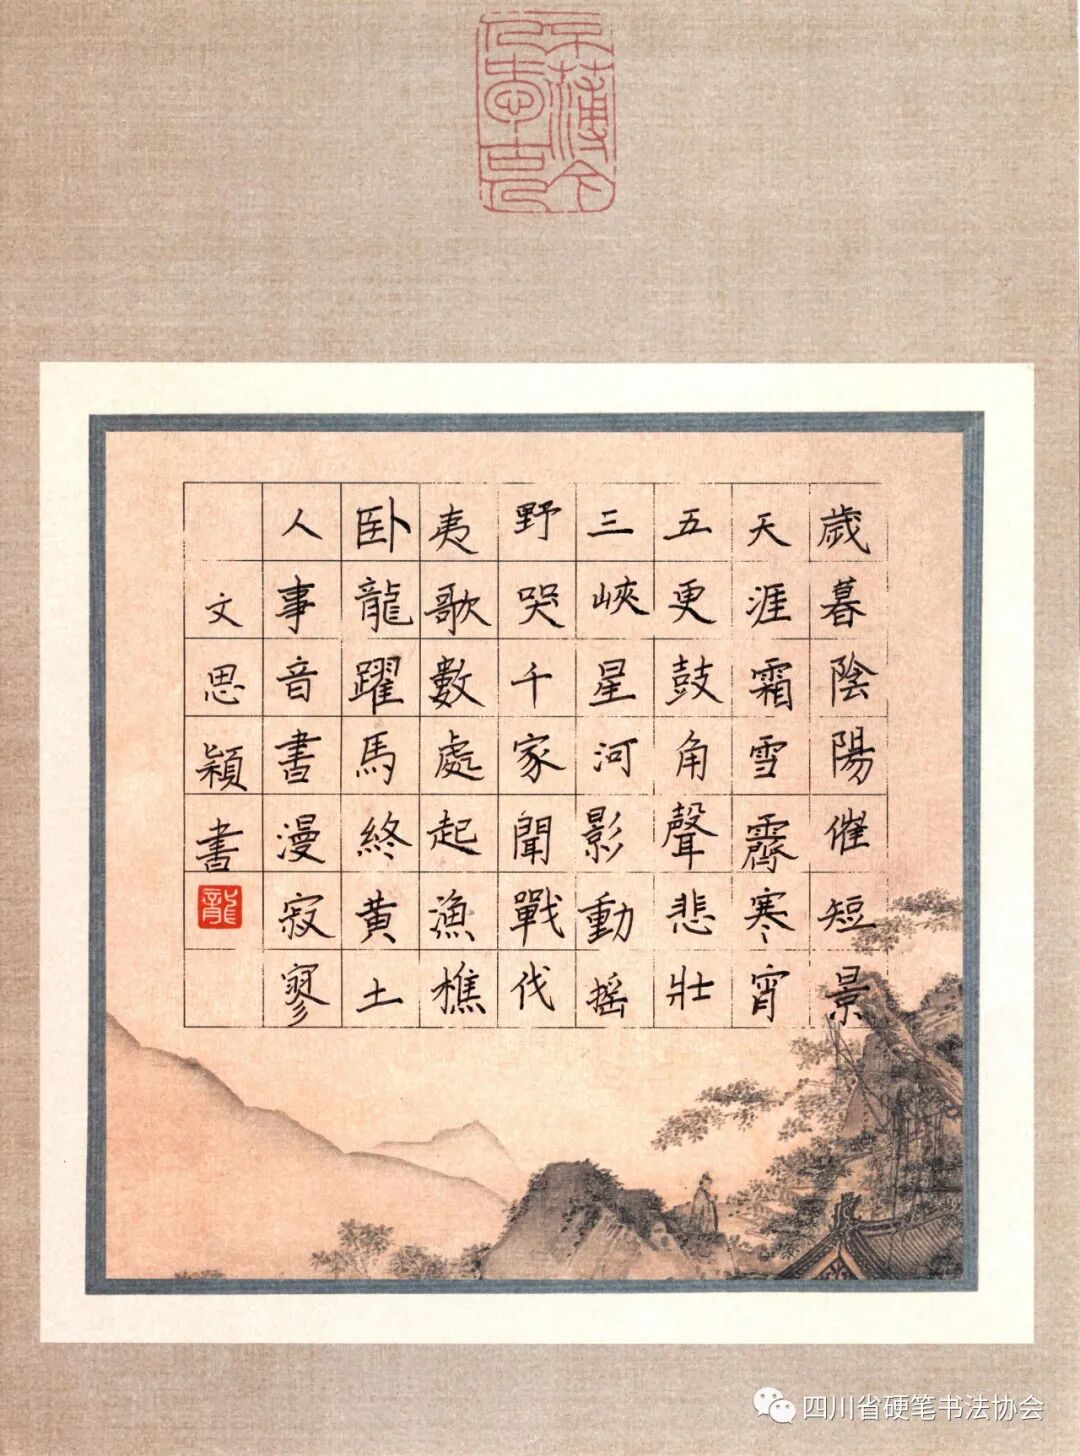 不薄今
人愛古人
歲暮陰陽催短景
天涯霜雪霽寒宵
五更鼓角聲悲壯
三峽星河影動搖
野哭千家聞戰伐
夷歌數處起漁樵
卧龍躍馬終黄土
人事音書漫寂寥
文思穎書
龍
四川省硬笔书法协会